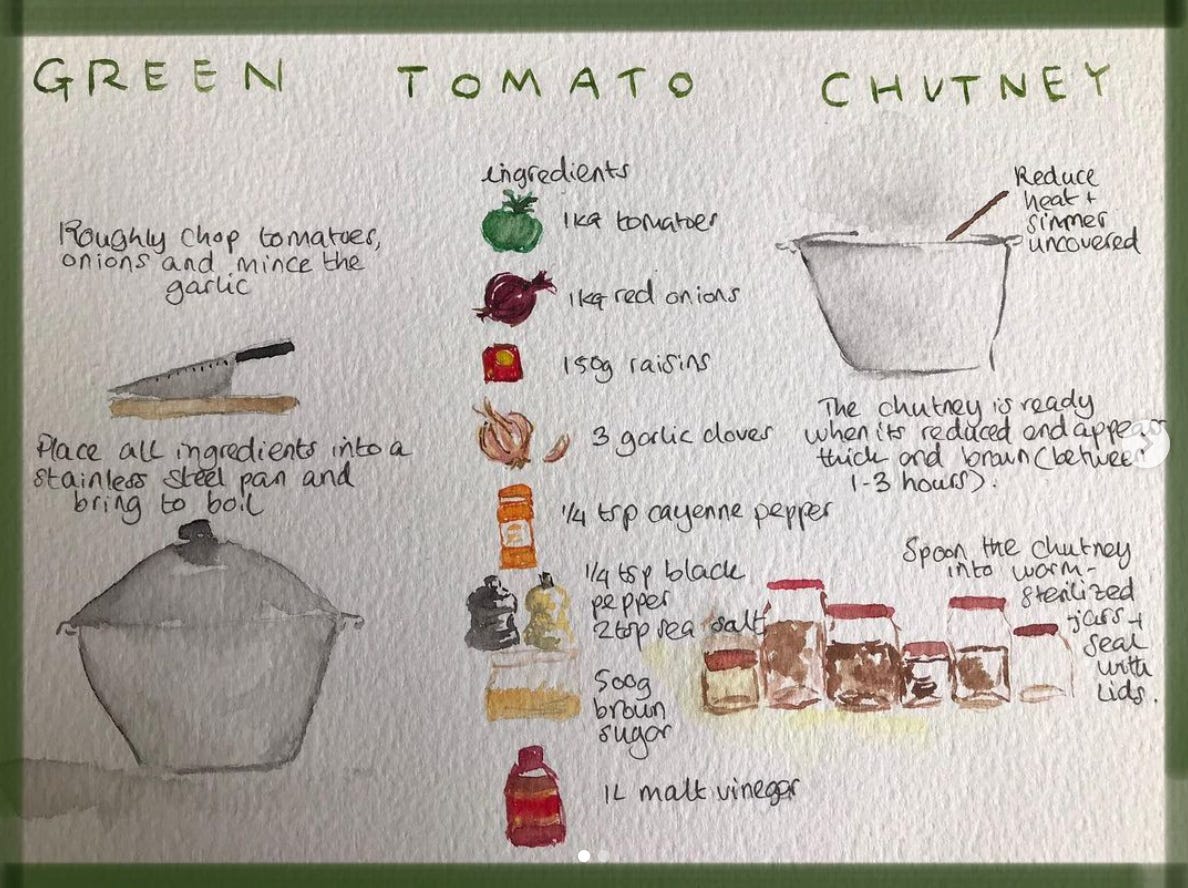 GREEN TOMATO CHUTNEY
Roughly chop tomatoes,
onions and mince the
garlic
Place all ingredients into a
stainless steel pan and
bring to boil
ingredients
1kg tomatoes
1kg red onions
150g raisins
3 garlic cloves
1/4 tsp cayenne pepper
1/4 tsp black
pepper
2tsp sea salt
500g
brown
sugar
1L malt vinegar
Reduce
heat +
simmer
uncovered
The chutney is ready
when its reduced and appears
thick and brown (between
1-3 hours).
Spoon the chutney
into warm-
sterilized
jars +
seal
with
lids.